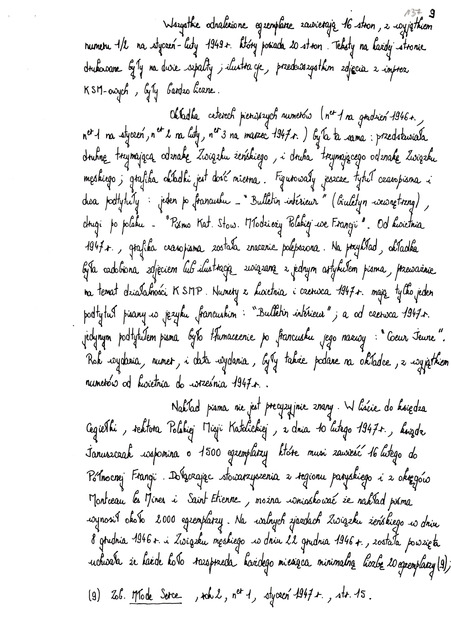 137 9
Wszystkie odnalezione egzemplarze zawierają 16 stron, z wyjątkiem
numeru 1/2 na styczeń-luty 1949 r. który posiada 20 stron. Teksty na każdej stronie
drukowane były na dwie szpalty; ilustracje, przedewszystkim zdjęcia z imprez
KSM-owych, były bardzo liczne.
Okładka czterech pierwszych numerów (nʳ 1 na grudzień 1946 r.,
nʳ 1 na styczeń, nʳ 2 na luty, nʳ 3 na marzec 1947 r.) była ta sama: przedstawiała
druhnę trzymającą odznakę Związku żeńskiego, i druha trzymającego odznakę Związku
męskiego; grafika okładki jest dość mierna. Figurowały jeszcze tytuł czasopisma i
dwa podtytuły: jeden po francusku - "Bulletin intérieur" (biuletyn wewnętrzny),
drugi po polsku - "Pismo Kat. Stow. Młodzieży Polskiej we Francji". Od kwietnia
1947 r., grafika czasopisma została znacznie polepszona. Na przykład, okładka
była ozdobiona zdjęciem lub ilustracją związaną z jednym artykułem pisma, przeważnie
na temat działalności KSMP. Numery z kwietnia i czerwca 1947 r. mają tylko jeden
podtytuł pisany w języku francuskim: "Bulletin intérieur"; a od czerwca 1947 r.
jedynym podtytułem pisma było tłumaczenie po francusku jego nazwy: "Coeur Jeune".
Rok wydania, numer, i data wydania, były także podane na okładce, z wyjątkiem
numerów od kwietnia do września 1947 r.
Nakład pisma nie jest precyzyjnie znany. W liście do księdza
Cegiełki, rektora Polskiej Misji Katolickiej, z dnia 10 lutego 1947 r., ksiądz
Januszczak wspomina o 1500 egzemplarzy które musi zawieść 16 lutego do
Północnej Francji. Dołączając stowarzyszenia z regionu paryskiego i z okręgów
Montceau les Mines i Saint Etienne, można wnioskować że nakład pisma
wynosił około 2000 egzemplarzy. Na walnych zjazdach Związku żeńskiego w dniu
8 grudnia 1946 r. i Związku męskiego w dniu 22 grudnia 1946 r., została powzięta
uchwała że każde koło rozsprzeda każdego miesiąca minimalną liczbę 20 egzemplarzy (9);
(9) Zob. Młode Serce, rok 2, nʳ 1, styczeń 1947 r., str. 15.